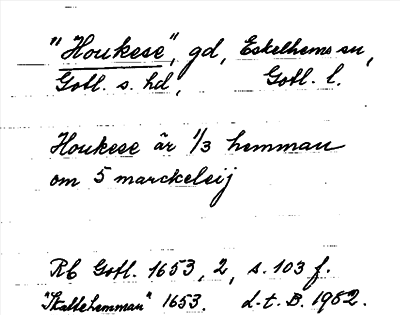 "Houkese", gd, Eskelhems sn,
Gotl. s. hd, Gotl. l.
Houkese är 1/3 hemman
om 5 marckeleij
Rb Gotl. 1653, 2, s. 103 f.
"Skattehemman" 1653. d. t. B. 1982.